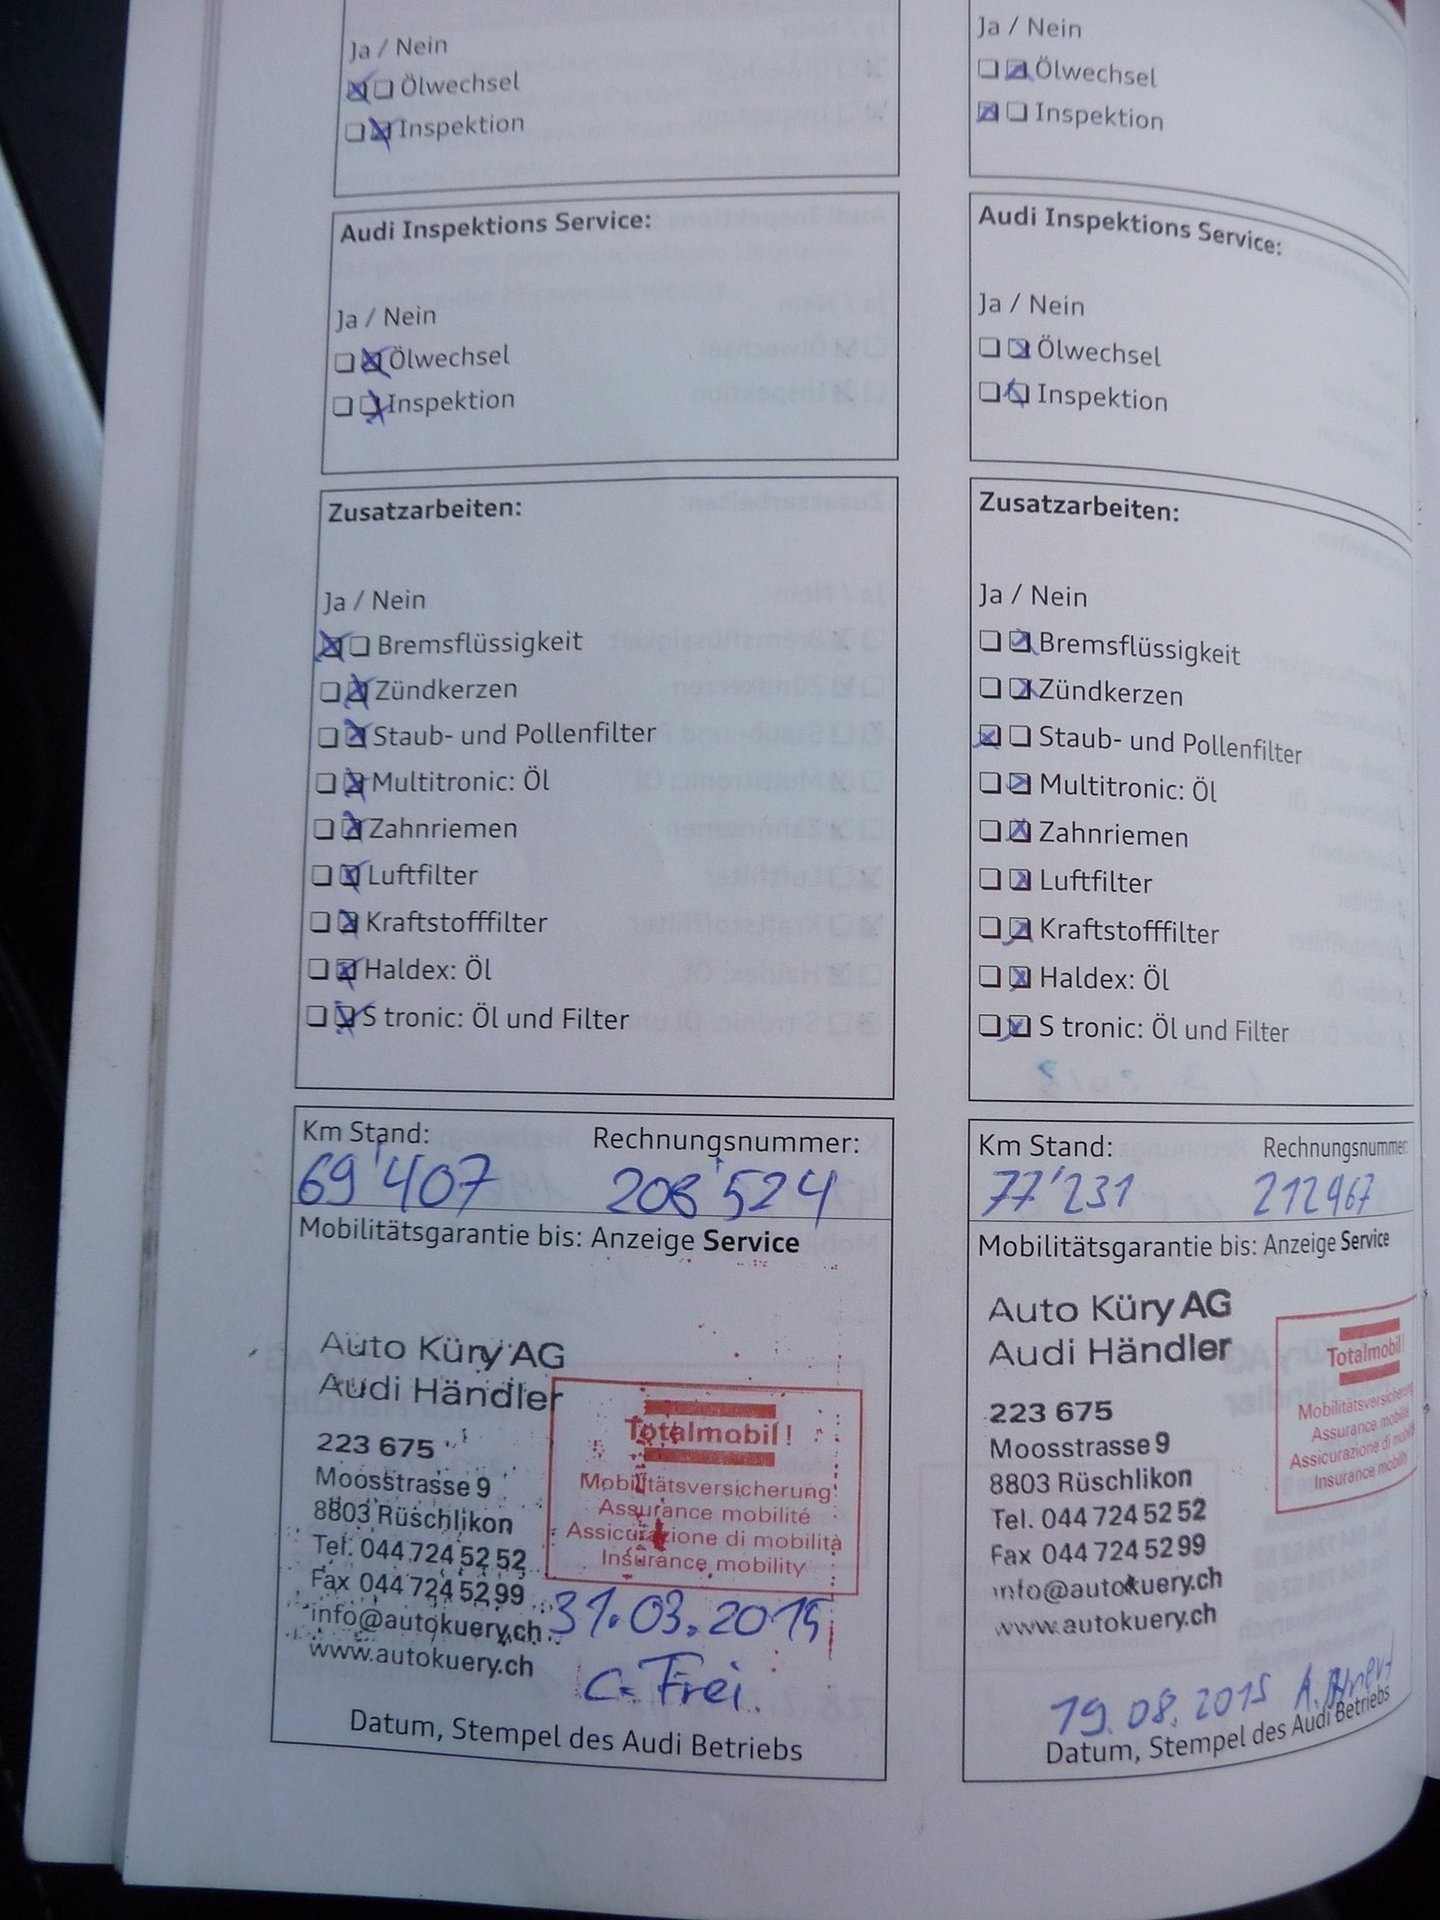 Ja / Nein
Ölwechsel
Inspektion
Audi Inspektions Service:
Ja / Nein
Ölwechsel
Inspektion
Zusatzarbeiten:
Ja / Nein
Bremsflüssigkeit
Zündkerzen
Staub- und Pollenfilter
Multitronic: Öl
Zahnriemen
Luftfilter
Kraftstofffilter
Haldex: Öl
S tronic: Öl und Filter
Km Stand: Rechnungsnummer:
69'407 208'524
Mobilitätsgarantie bis: Anzeige Service
Auto Küry AG
Audi Händler
223 675
Moosstrasse 9
8803 Rüschlikon
Tel. 044 724 52 52
Fax 044 724 52 99
info@autokuery.ch
www.autokuery.ch
Totalmobil!
Mobilitätsversicherung
Assurance mobilité
Assicurazione di mobilità
Insurance mobility
31.03.2015
C. Frei
Datum, Stempel des Audi Betriebs
Ja / Nein
Ölwechsel
Inspektion
Audi Inspektions Service:
Ja / Nein
Ölwechsel
Inspektion
Zusatzarbeiten:
Ja / Nein
Bremsflüssigkeit
Zündkerzen
Staub- und Pollenfilter
Multitronic: Öl
Zahnriemen
Luftfilter
Kraftstofffilter
Haldex: Öl
S tronic: Öl und Filter
Km Stand: Rechnungsnummer:
77'231 212967
Mobilitätsgarantie bis: Anzeige Service
Auto Küry AG
Audi Händler
223 675
Moosstrasse 9
8803 Rüschlikon
Tel. 044 724 52 52
Fax 044 724 52 99
info@autokuery.ch
www.autokuery.ch
Totalmobil!
Mobilitätsversicherung
Assurance mobilité
Assicurazione di mobilità
Insurance mobility
19.08.2015 A.
Datum, Stempel des Audi Betriebs